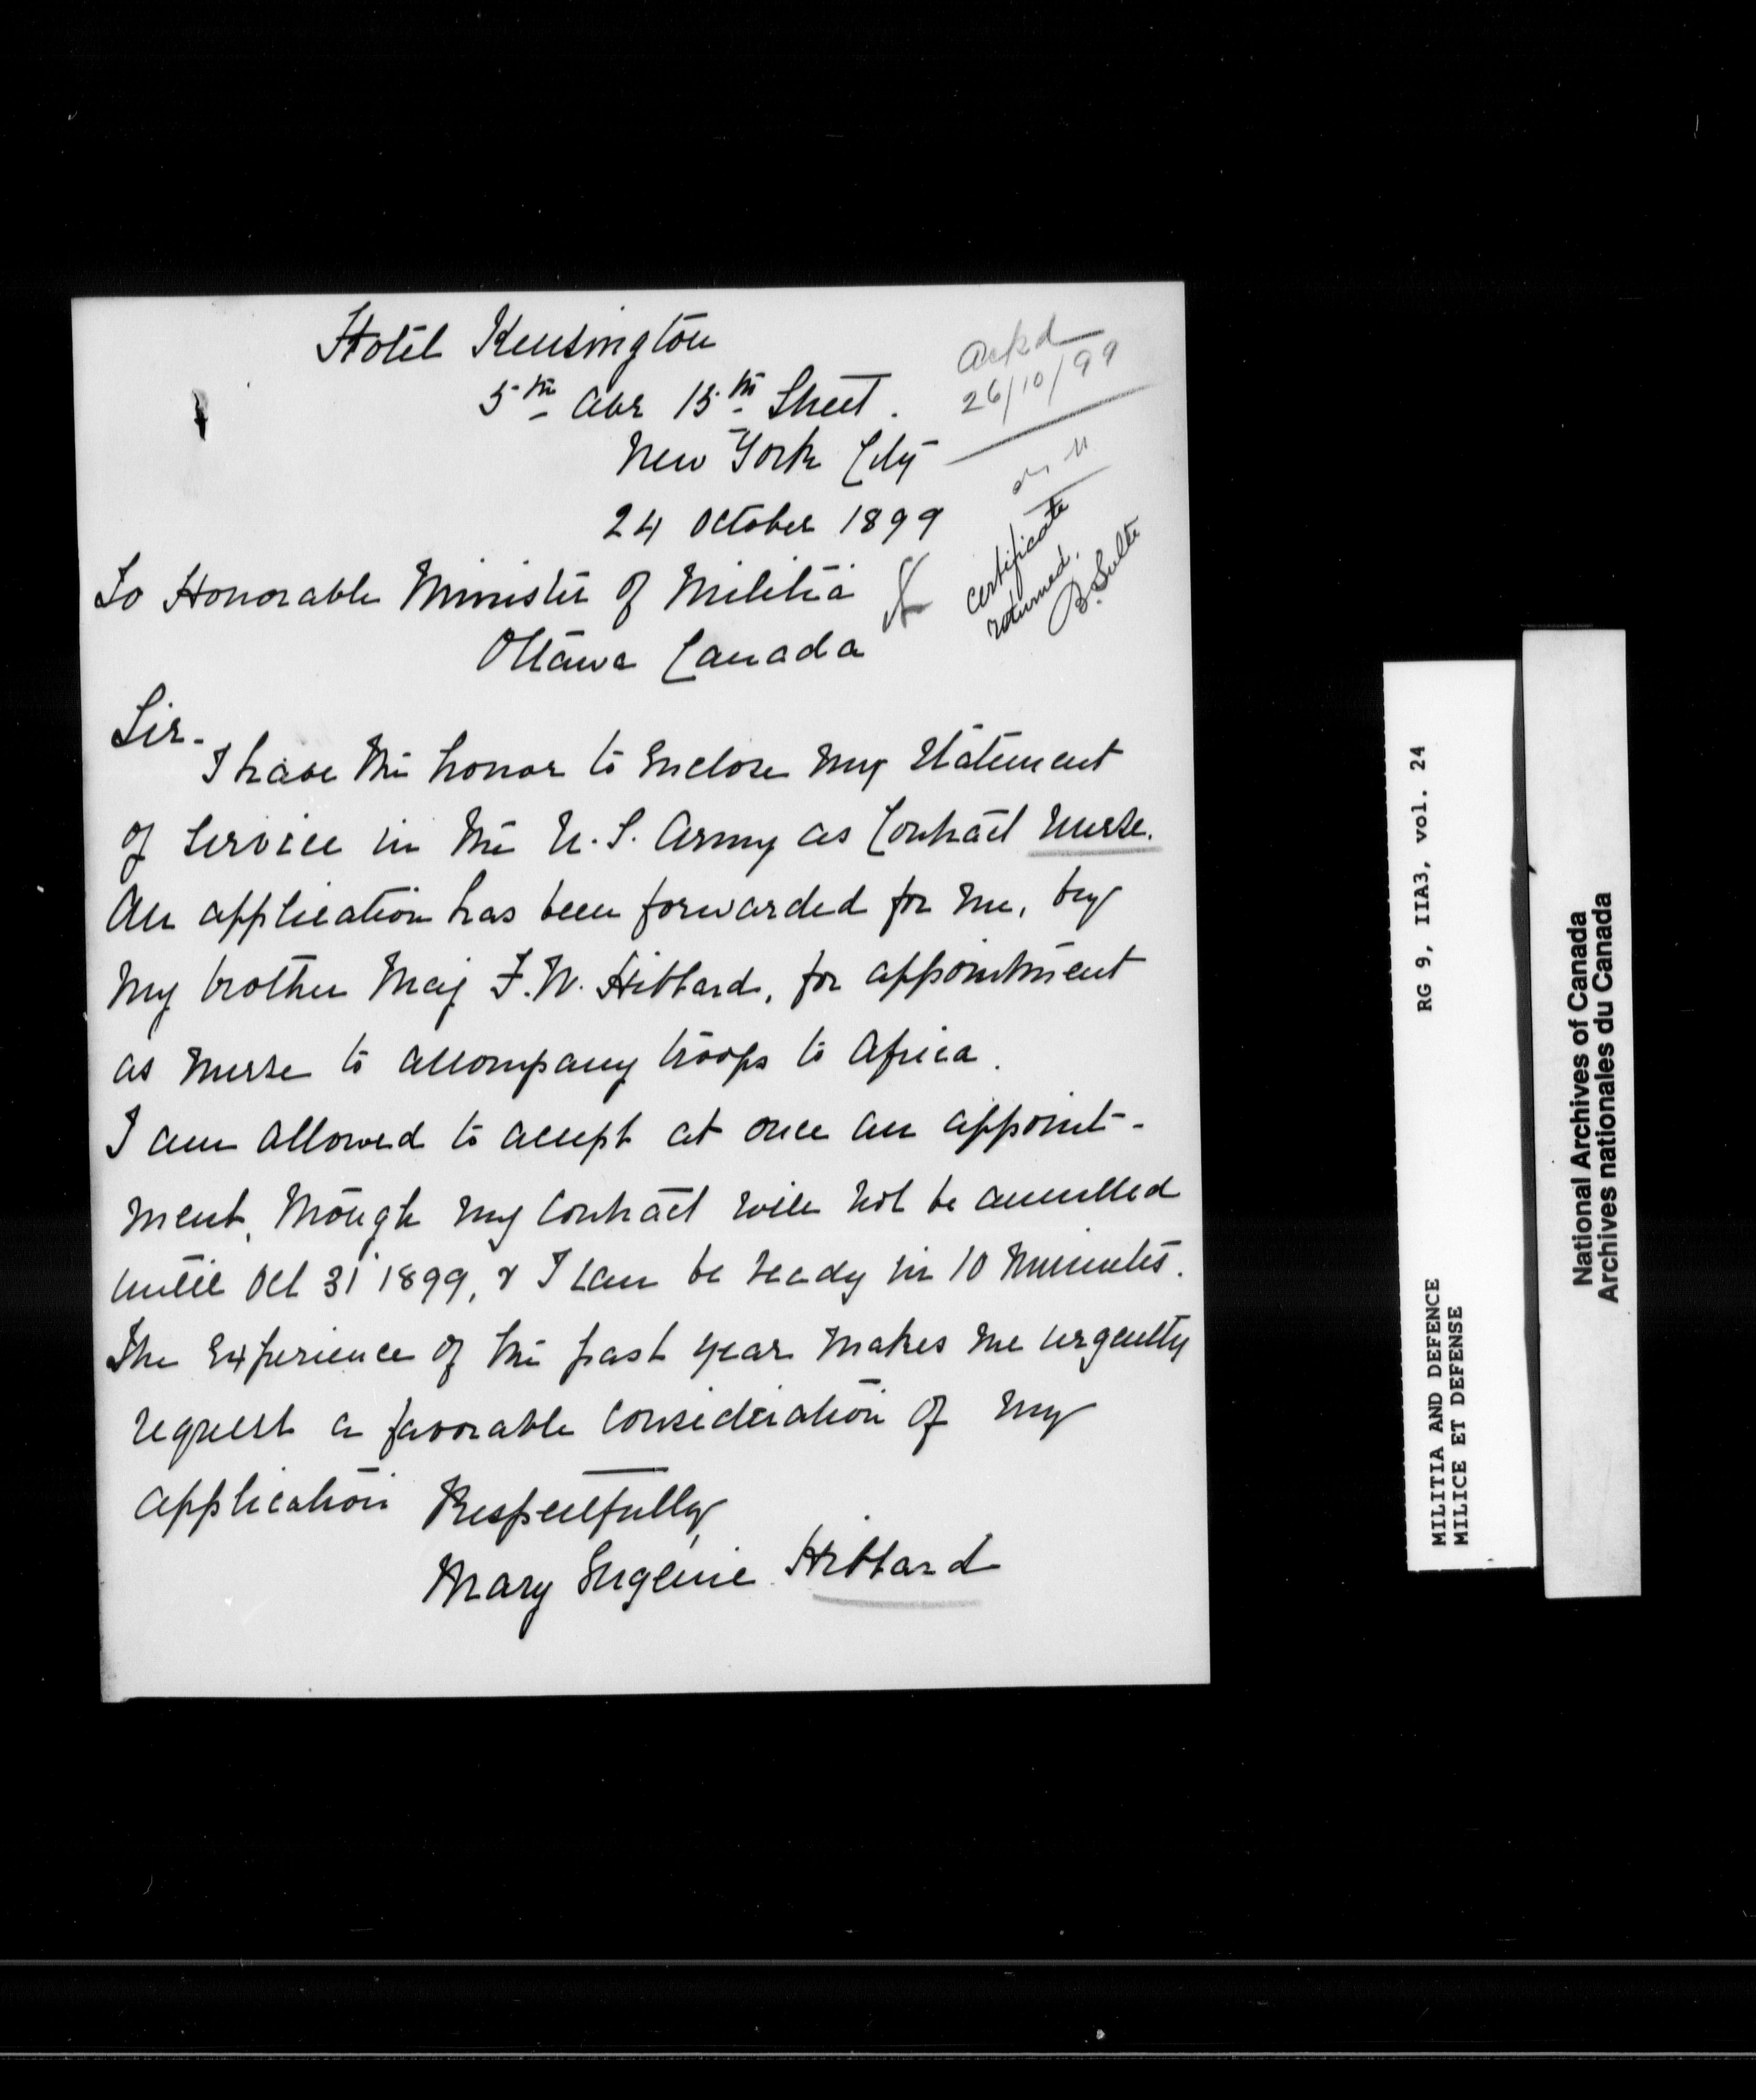 Hotel Kensington
5th Ave 15th Street.
New York City
24 October 1899
Ack'd
26/10/99
certificate
returned.
B. Sulte
To Honorable Minister of Militia
Ottawa Canada
Sir-
I have the honor to enclose my statement
of service in the U.S. Army as Contract nurse.
An application has been forwarded for me, by
my brother Maj F.W. Hibbard, for appointment
as nurse to accompany troops to Africa.
I am allowed to accept at once an appoint-
ment, though my contract will not be annulled
until Oct 31 1899, & I can be ready in 10 minutes.
The experience of the past year makes me urgently
request a favorable consideration of my
application Respectfully,
Mary Eugénie Hibbard
RG 9, IIA3, vol. 24
MILITIA AND DEFENCE
MILICE ET DEFENSE
National Archives of Canada
Archives nationales du Canada